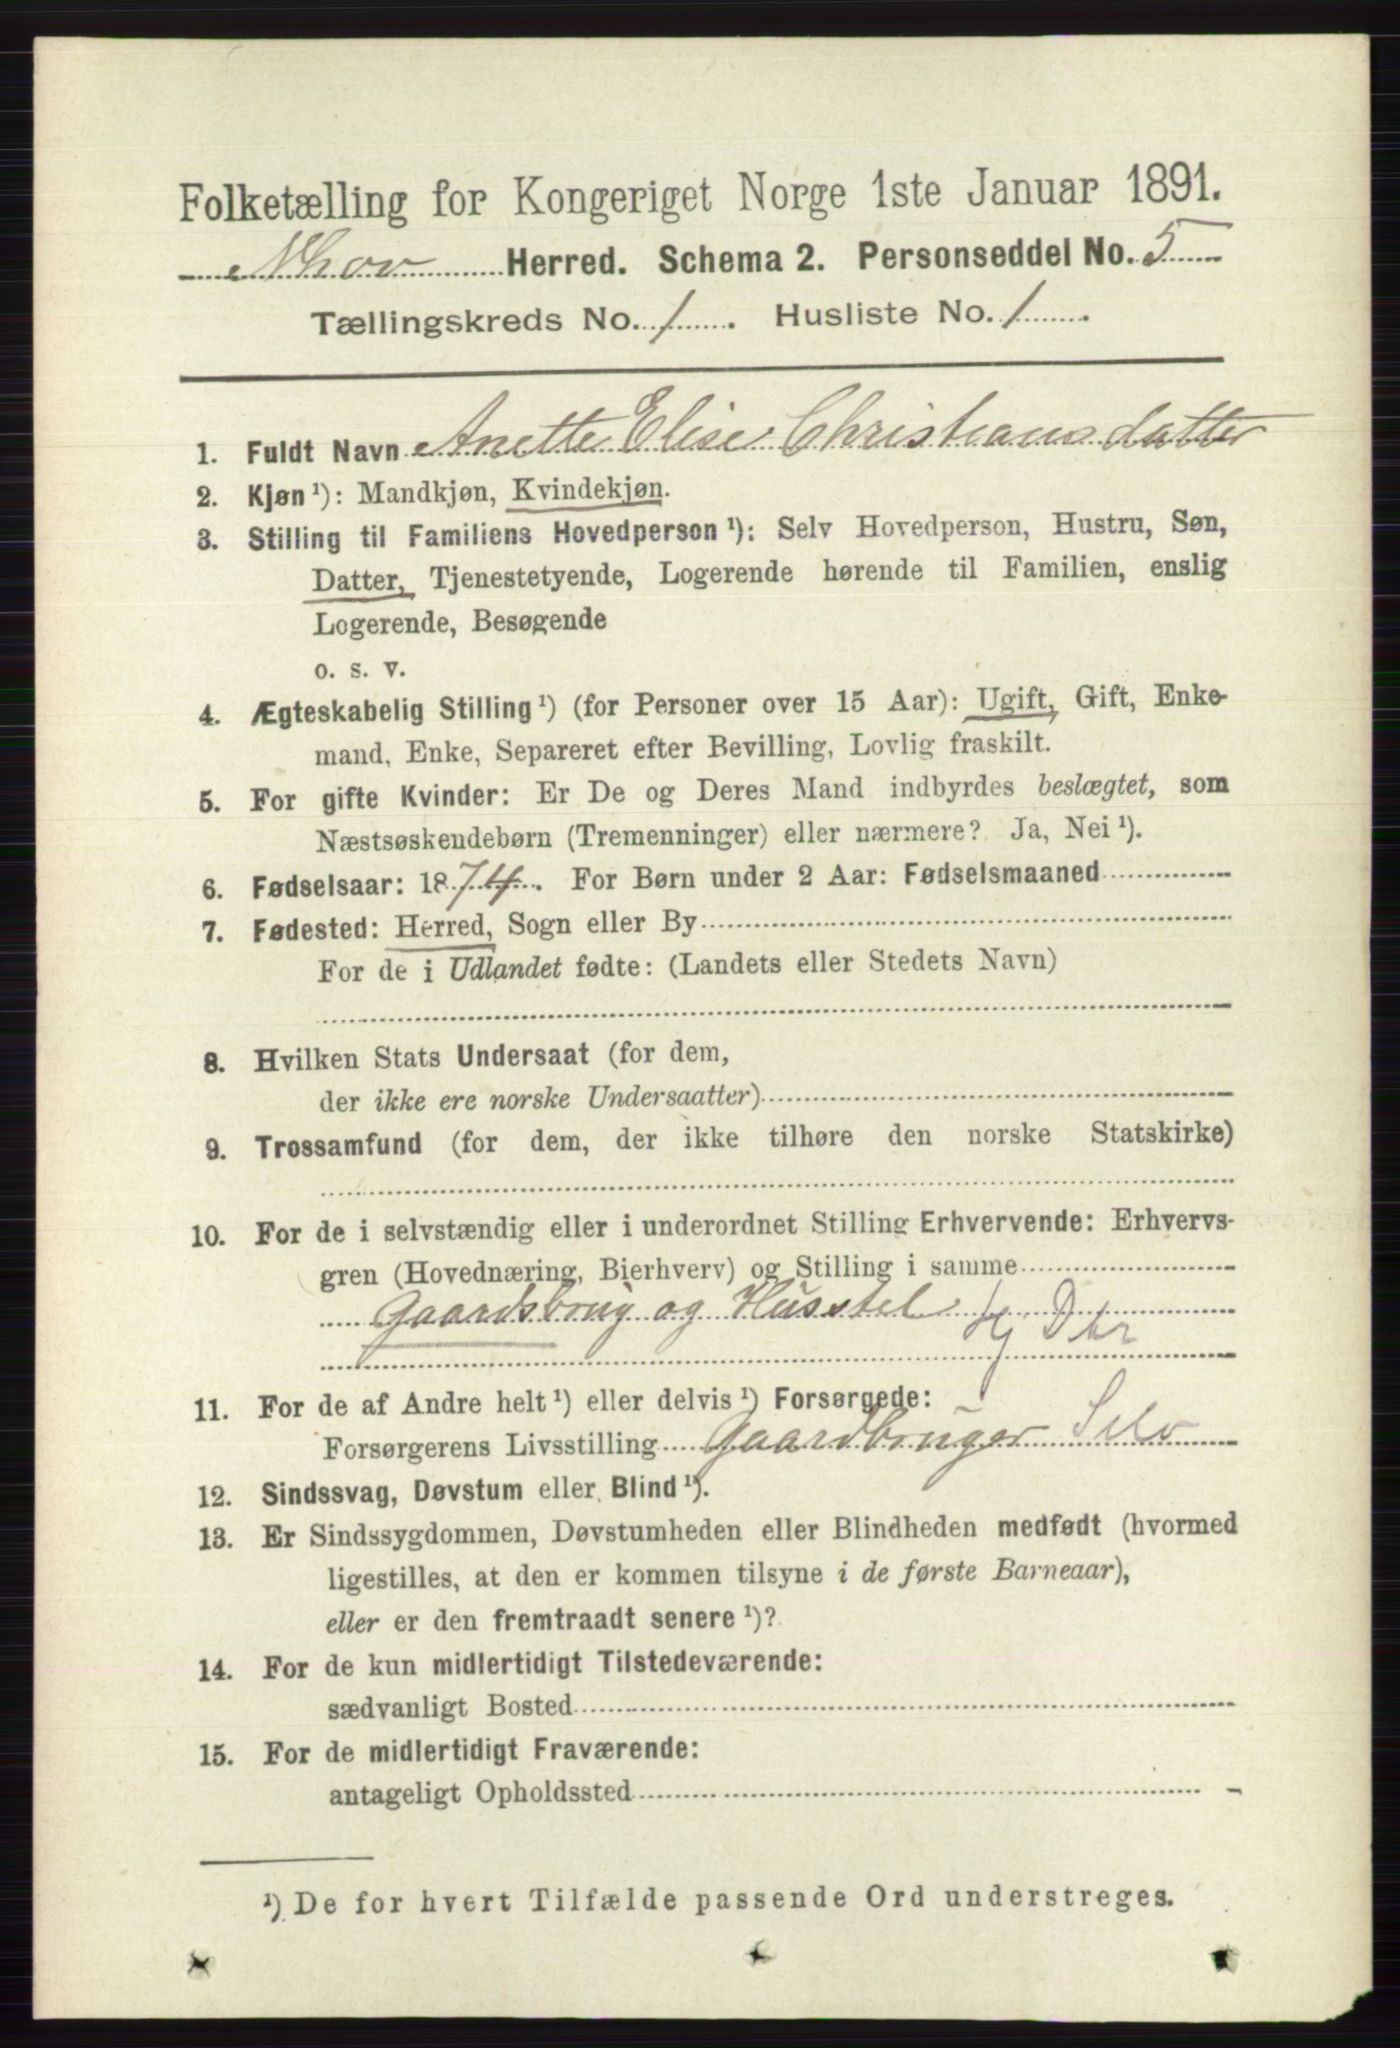 Folketælling for Kongeriget Norge 1ste Januar 1891.
Herred. Schema 2. Personseddel No. 5
Tællingskreds No. 1. Husliste No. 1
1. Fuldt Navn Anette Elise Christiansdatter
2. Kjøn ¹): Mandkjøn, Kvindekjøn.
3. Stilling til Familiens Hovedperson ¹): Selv Hovedperson, Hustru, Søn,
Datter, Tjenestetyende, Logerende hørende til Familien, enslig
Logerende, Besøgende
o. s. v.
4. Ægteskabelig Stilling ¹) (for Personer over 15 Aar): Ugift, Gift, Enke-
mand, Enke, Separeret efter Bevilling, Lovlig fraskilt.
5. For gifte Kvinder: Er De og Deres Mand indbyrdes beslægtet, som
Næstsøskendebørn (Tremenninger) eller nærmere? Ja, Nei ¹).
6. Fødselsaar: 1874. For Børn under 2 Aar: Fødselsmaaned
7. Fødested: Herred, Sogn eller By
For de i Udlandet fødte: (Landets eller Stedets Navn)
8. Hvilken Stats Undersaat (for dem,
der ikke ere norske Undersaatter)
9. Trossamfund (for dem, der ikke tilhøre den norske Statskirke)
10. For de i selvstændig eller i underordnet Stilling Erhvervende: Erhvervs-
gren (Hovednæring, Bierhverv) og Stilling i samme
Gaardsbrug og Husstel Hj Dtr
11. For de af Andre helt ¹) eller delvis ¹) Forsørgede:
Forsørgerens Livsstilling Gaardbruger Selv
12. Sindssvag, Døvstum eller Blind ¹).
13. Er Sindssygdommen, Døvstumheden eller Blindheden medfødt (hvormed
ligestilles, at den er kommen tilsyne i de første Barneaar),
eller er den fremtraadt senere ¹)?
14. For de kun midlertidigt Tilstedeværende:
sædvanligt Bosted
15. For de midlertidigt Fraværende:
antageligt Opholdssted
¹) De for hvert Tilfælde passende Ord understreges.